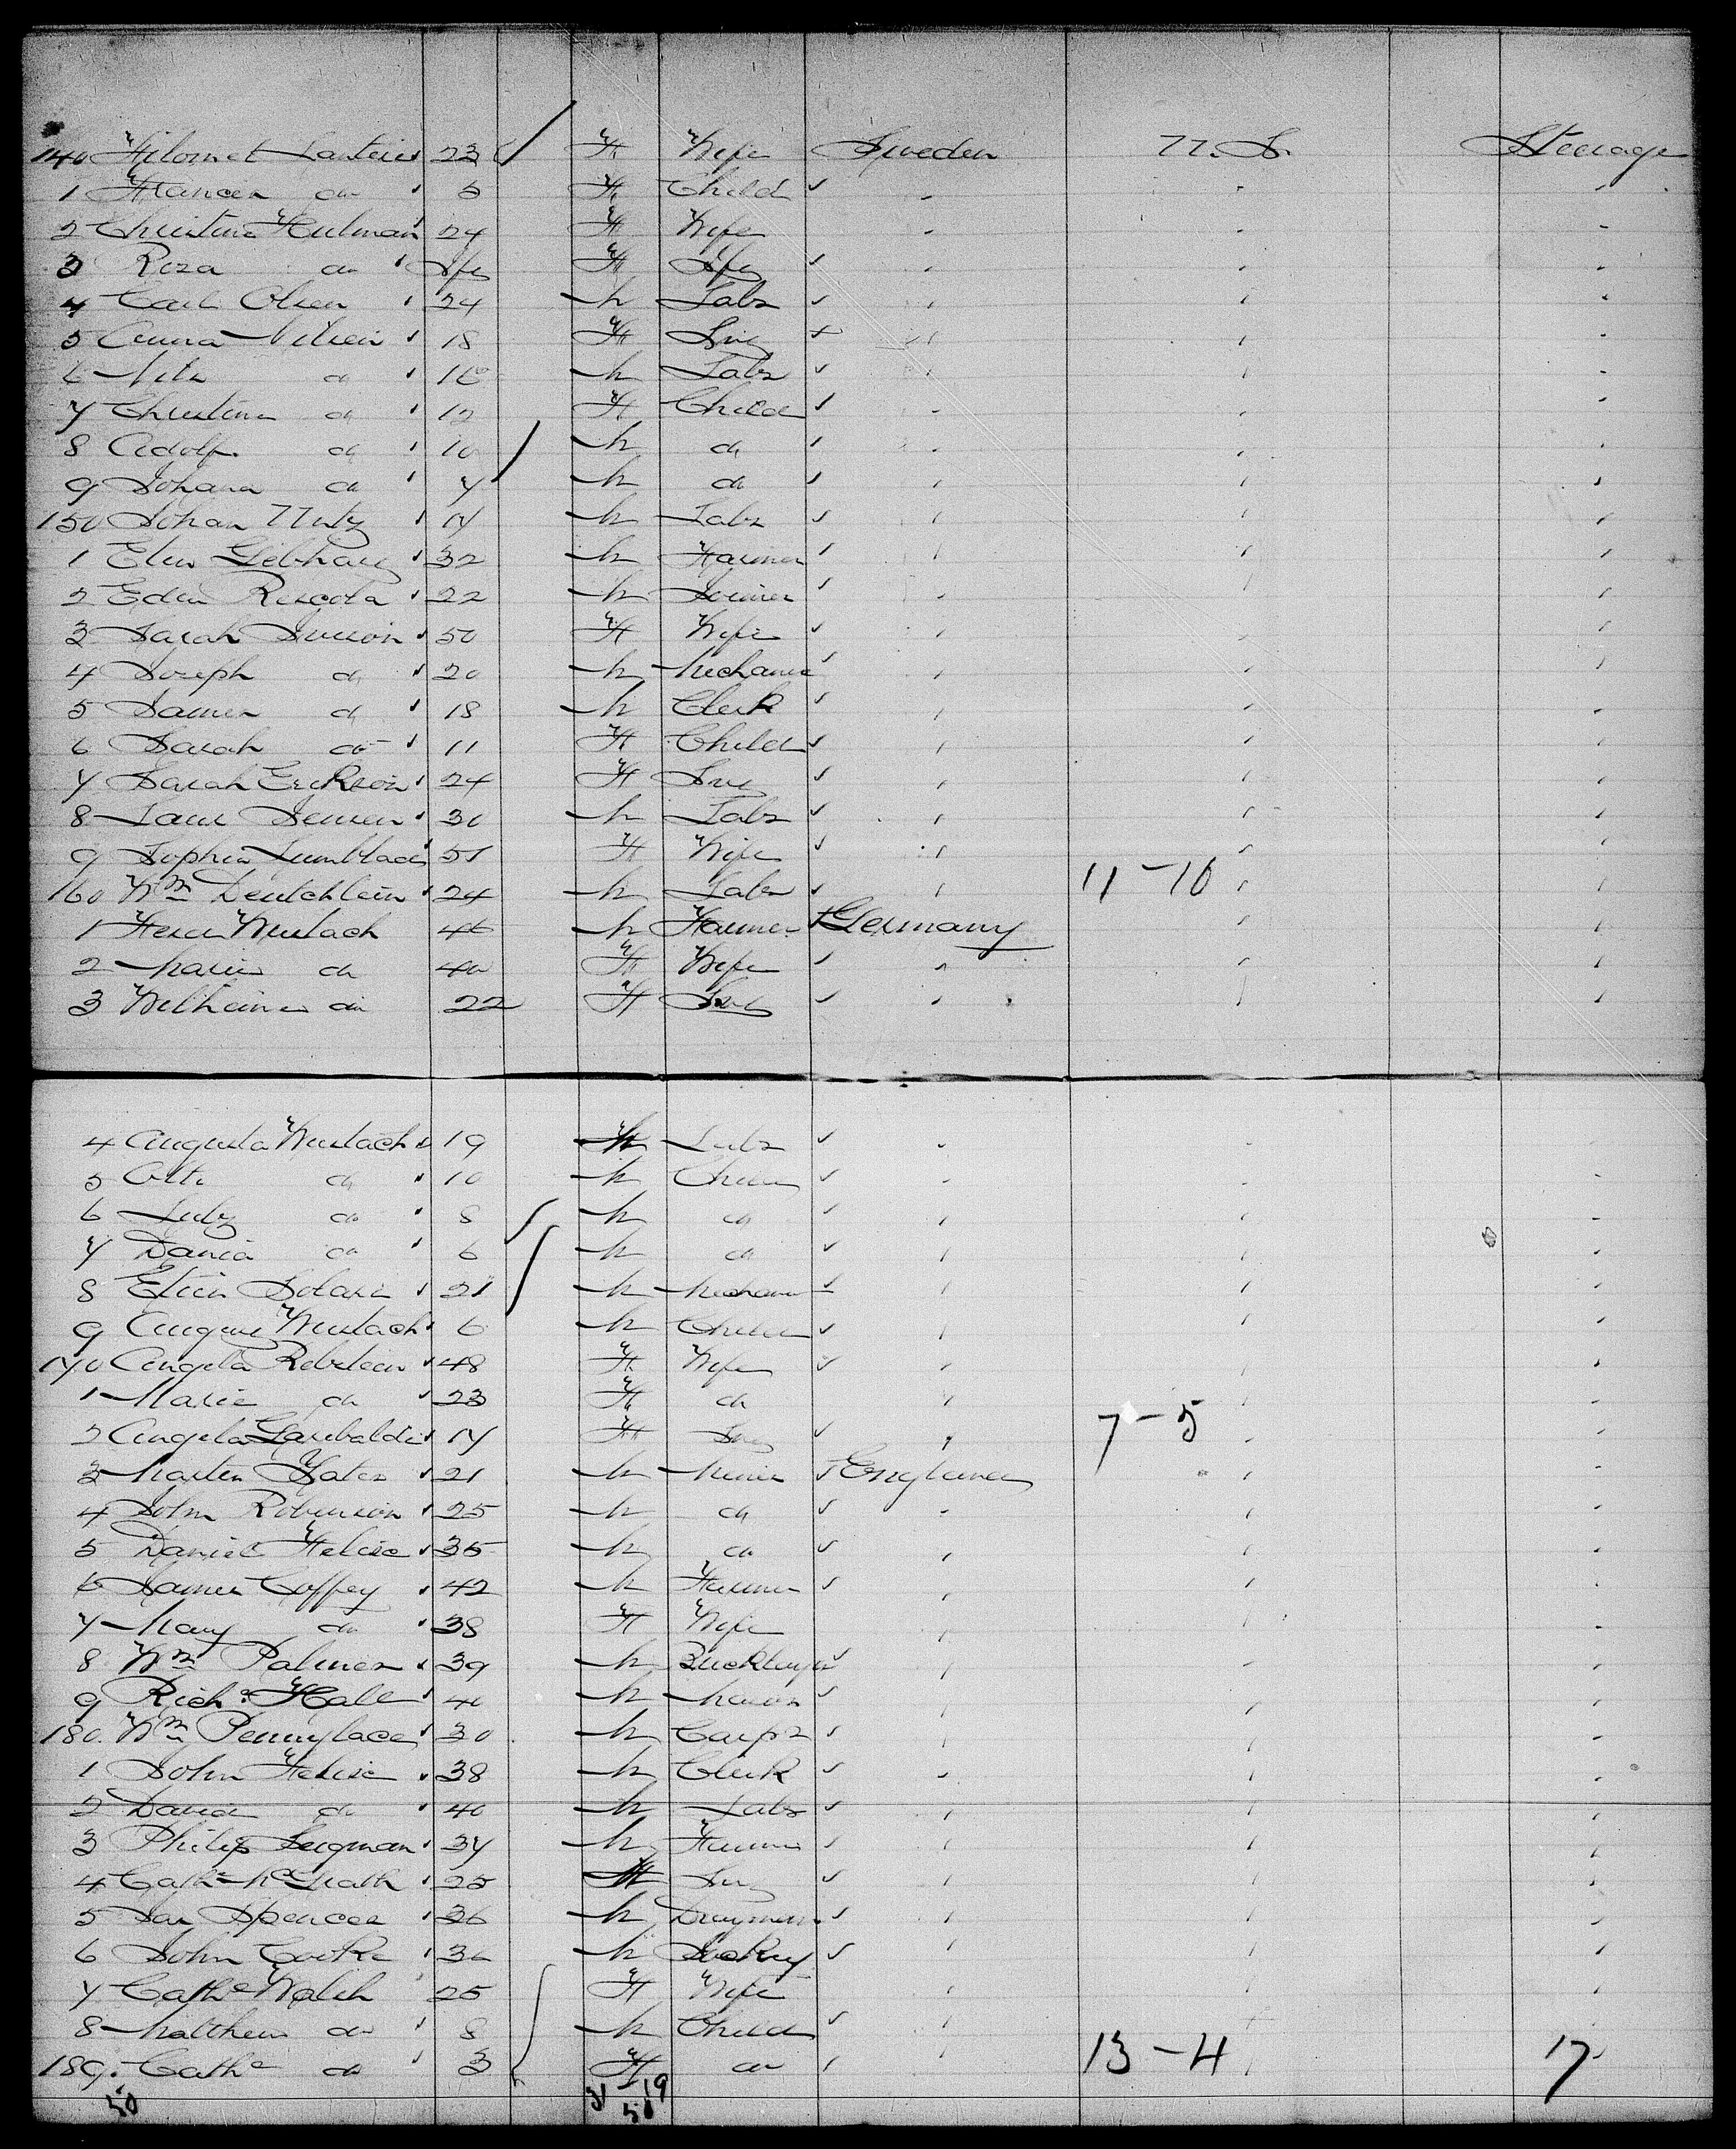 140 Filomet 23 F Wife Sweden U.S. Steerage
1 Frances do 5 F Child
2 Christina Hulman 24 F Wife
3 Roza do F
4 Carl Olsen 24 M Labr
5 Anna Nilsen 18 F Srv
6 Nils do 16 M Labr
7 Christina do 12 F Child
8 Adolf do 10 M do
9 Johana do 7 M do
150 Johan 17 M Labr
1 32 M Farmer
2 Edin 22 M Joiner
3 Sarah 50 F Wife
4 Joseph do 20 M Mechanic
5 James do 18 M Clerk
6 Sarah do 11 F Child
7 Sarah Erikson 24 F Srv
8 Jensen 30 M Labr
9 Sophia 51 F Wife
160 Wm Deutchlein 24 M Labr 11-10
1 Wusbach 46 M Farmer Germany
2 Marie do 40 F Wife
3 Wilheime do 22 F Srv
4 Augusta Wusbach 19 Labr
5 Otto do 10 M Child
6 do 8 M do
7 David do 6 M do
8 Solari 21 M Mechanic
9 Wusbach 6 M Child
170 Angela 48 F Wife
1 Marie do 23 F do
2 Angela Garibaldi 17 F Srv 7-5
3 Marten Yates 21 M Miner England
4 John Robinson 25 M do
5 Daniel 35 M do
6 James Coffey 42 M Farmer
7 Mary do 38 F Wife
8 Wm Palmer 39 M Bricklayer
9 Richd Hall 40 M Mason
180 Wm Pennylace 30 M Carpr
1 John 38 M Clerk
2 David do 40 M Labr
3 Philip 37 M Farmer
4 Cathe McGrath 25 F Srv
5 Jas Spencer 36 M Drayman
6 John Cooke 36 M Jockey
7 Cathe Walsh 25 F Wife
8 Matthew do 8 M Child
189. Cathe do 3 F do 13-4 17
50 31-19
50